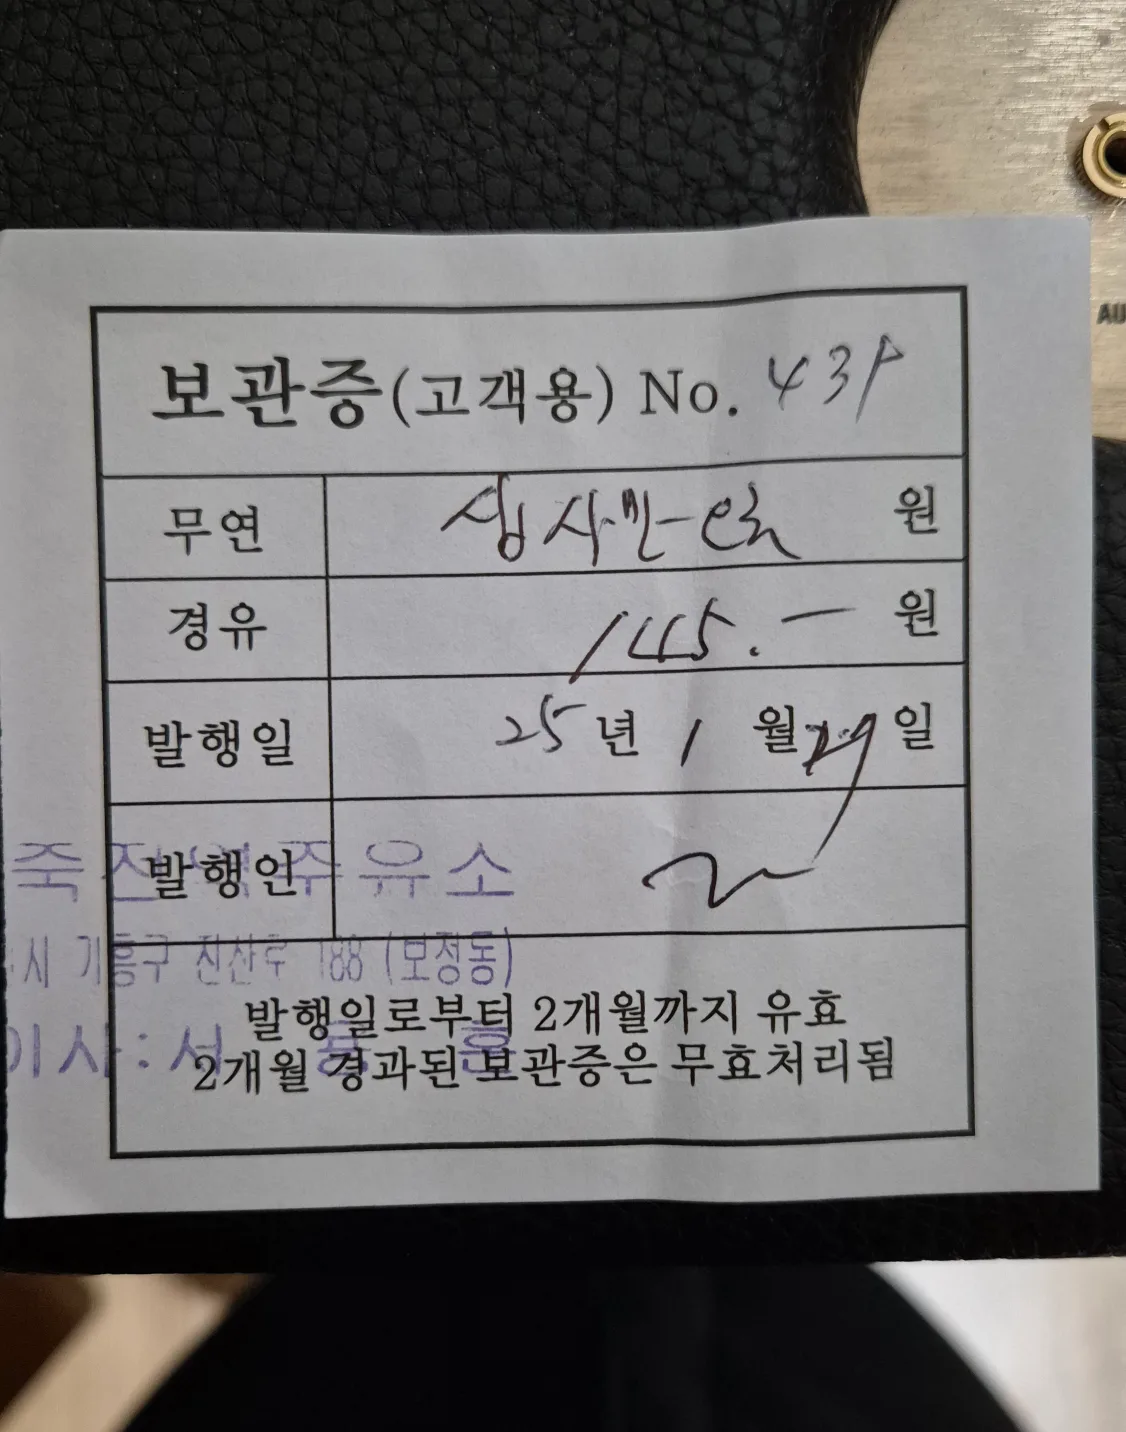 보관증(고객용) No. 431
무연 십사만 오천 원
경유 145.― 원
발행일 25년 1월 29일
발행인
죽전 주유소
시 기흥구 진산로 188 (보정동)
이사: 서
발행일로부터 2개월까지 유효
2개월 경과된 보관증은 무효처리됨
AU